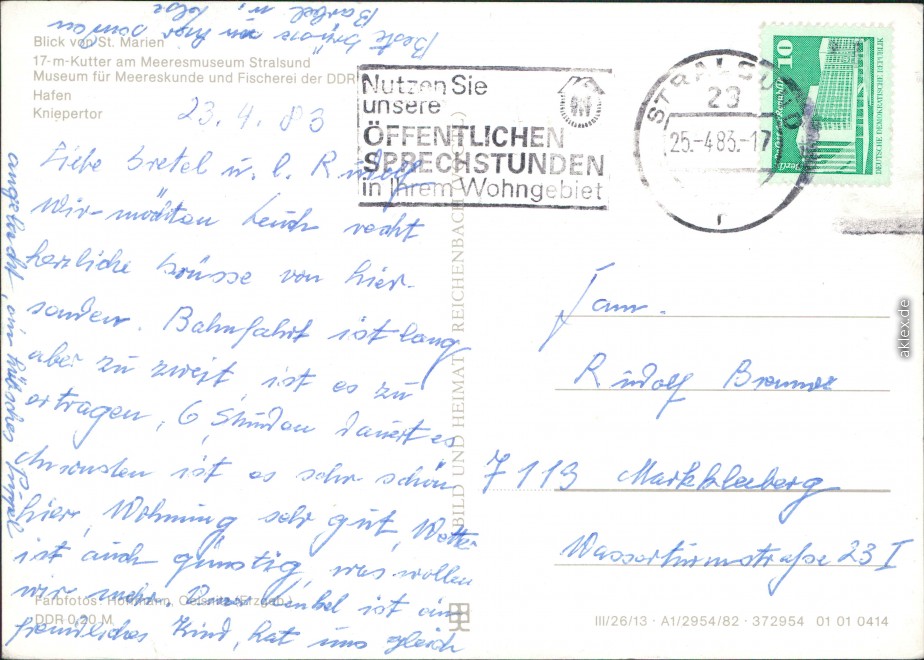 Blick von St. Marien
17-m-Kutter am Meeresmuseum Stralsund
Museum für Meereskunde und Fischerei der DDR
Hafen
Kniepertor
23.4.83
Liebe Gretel u. l. Rudolf
Wir möchten Euch recht
herzliche Grüsse von hier
senden. Bahnfahrt ist lang
aber zu zweit ist es zu
ertragen, 6 Stunden dauert es
Ansonsten ist es sehr schön
hier, Wohnung sehr gut, Wetter
ist auch günstig, was wollen
wir mehr. Enkel ist ein
freundliches Kind, hat uns gleich
angelacht, ein hübsches
Beste Grüsse
Bärbel u.
Nutzen Sie
unsere
ÖFFENTLICHEN
SPRECHSTUNDEN
in Ihrem Wohngebiet
STRALSUND
23
25.-4.83.-17
r
10
DEUTSCHE DEMOKRATISCHE REPUBLIK
BILD UND HEIMAT REICHENBACH
Fam.
Rudolf
7113 Markkleeberg
Wasserturmstraße 23 I
Farbfotos: Hoffmann, Oelsnitz (Erzgeb.)
DDR 0,20 M
III/26/13 · A1/2954/82 · 372954 01 01 0414
aklex.de